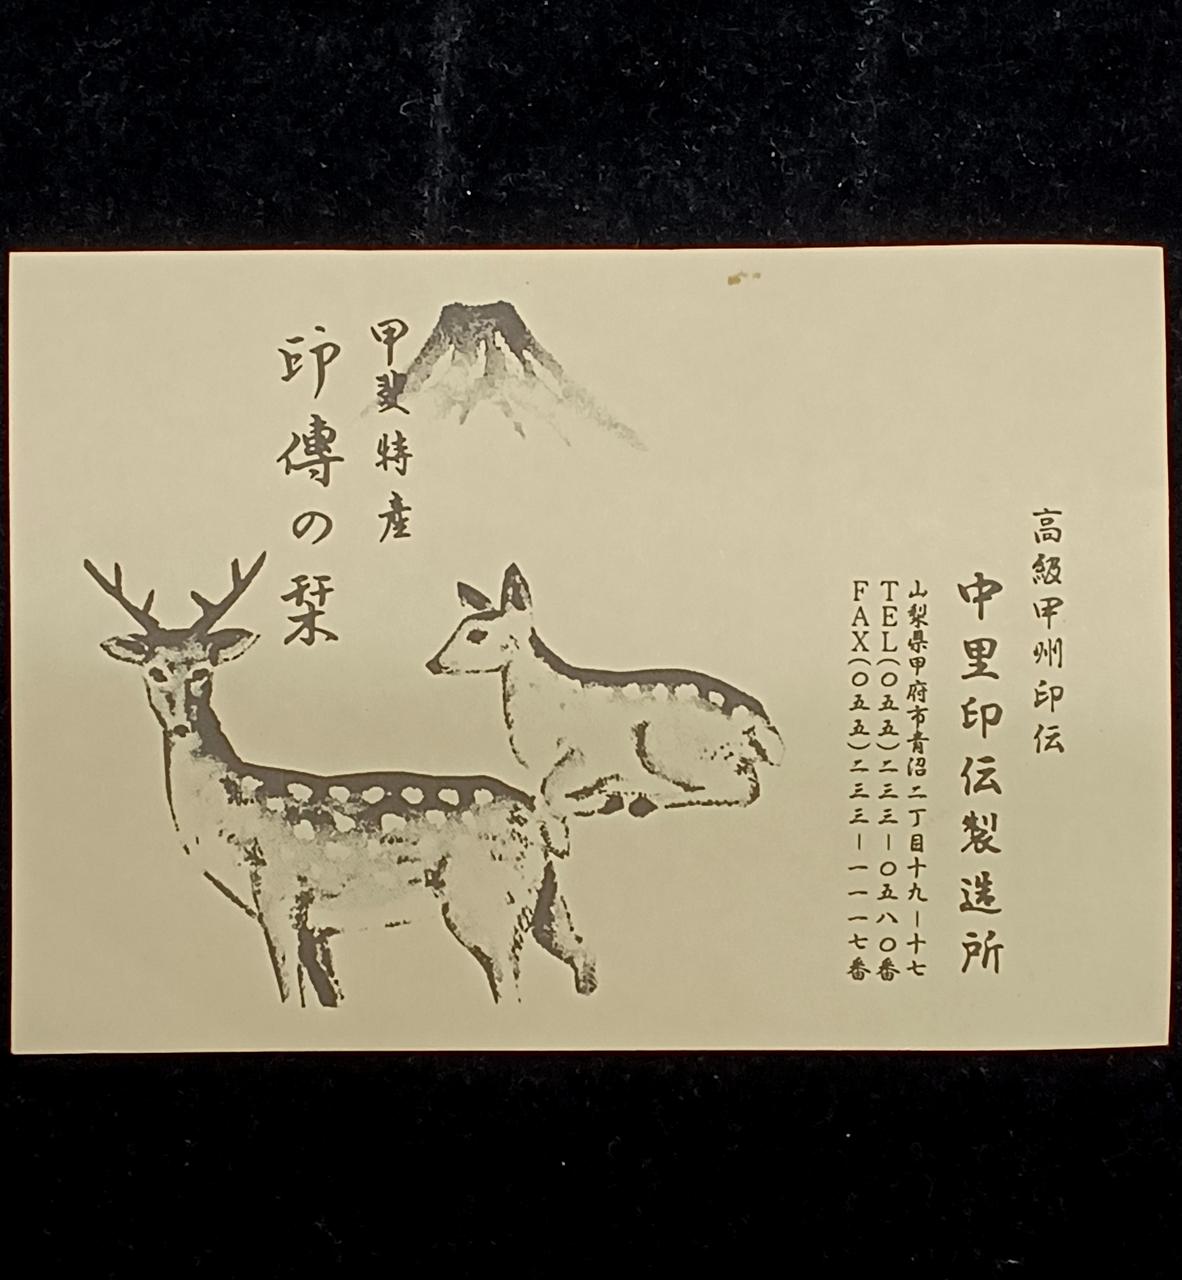 高級甲州印伝
中里印伝製造所
山梨県甲府市青沼二丁目十九ー十七
TEL(〇五五)二三三ー〇五八〇番
FAX(〇五五)二三三ー一一一七番
甲斐特産
印傳の栞